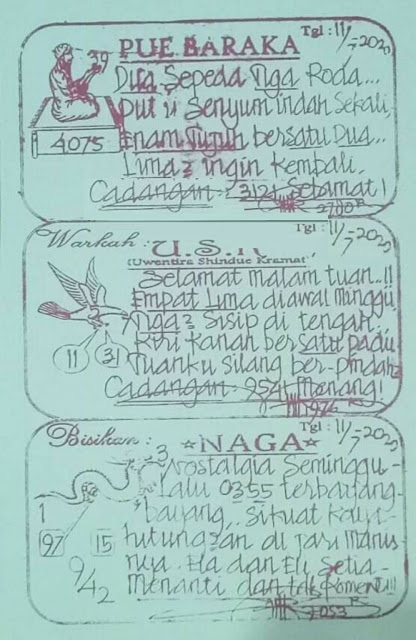 Tgl: 11/7-2020
PUE BARAKA
39
Dua Sepeda Tiga Roda...
Put ii Senyum indah Sekali,
4075
Enam Tujuh bersatu Dua...
Lima 2 ingin Kembali.
Cadangan: 3121 Selamat!
Tgl: 11/7-2020
Warkah: U.S.K
(Uwentira Shindue Kramat)
Selamat malam tuan...!!
Empat Lima diawal minggu,
Tiga 2 Sisip di tengah.
11 31
Kiri Kanan bersatu padu
Tuanku Silang ber-pindah2
Cadangan: 9521 Menang!
Tgl: 11/7-2020
Bisikan: NAGA
3
Nostalgia Seminggu-
Lalu 0355 terbayang-
1
bayang,. Sikuat Kaya
97 15
nya. Ha dan Eli Setia-
942
Menanti dan tak Koment!!!
7053